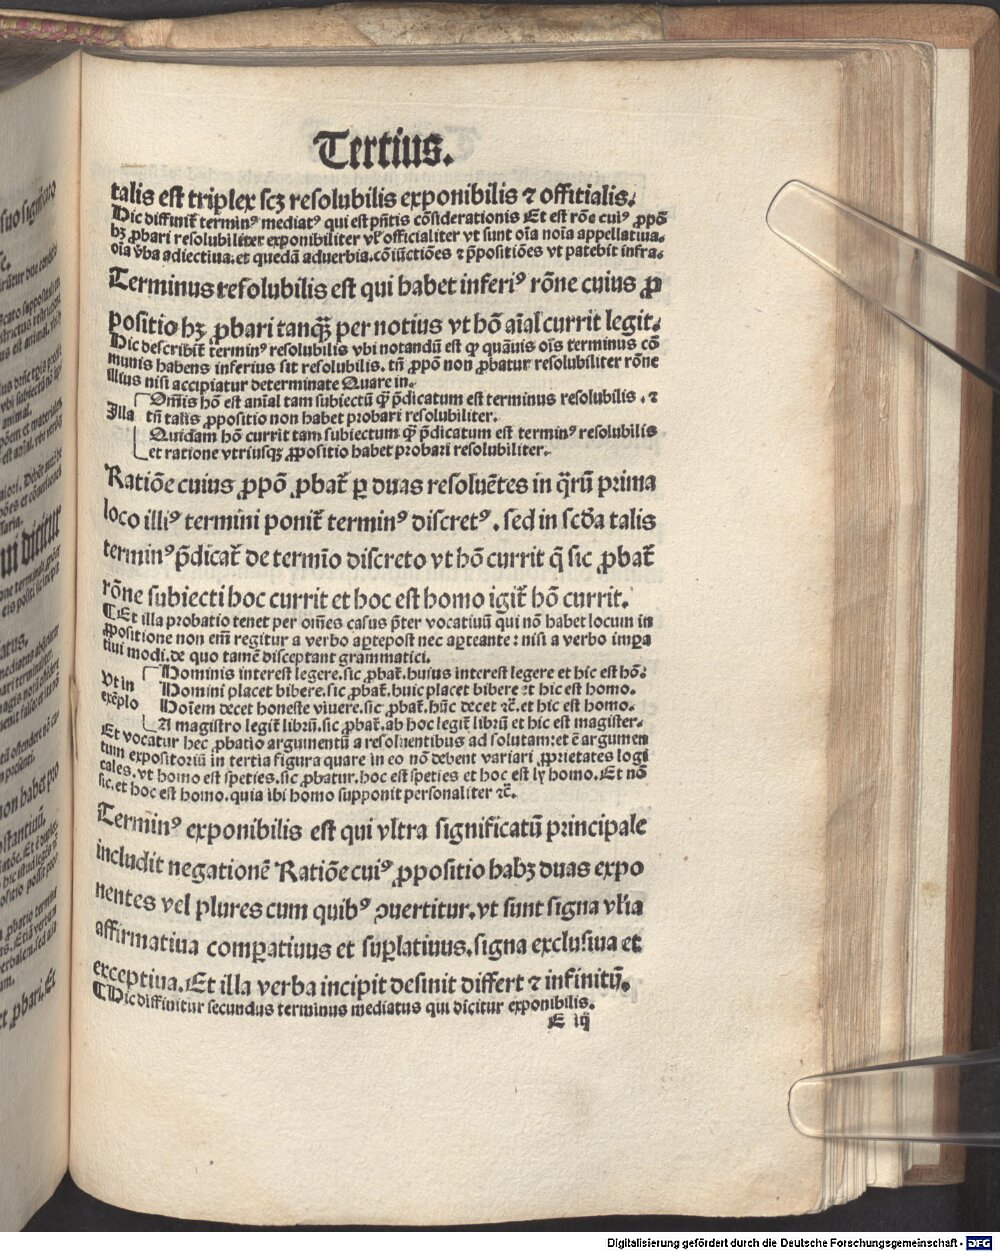 Tertius.
talis est triplex scꝫ resolubilis exponibilis ⁊ offitialis.
Hic diffinit᷑ terminꝰ mediatꝰ qui est pn̄tis cōsiderationis Et est rōne cuiꝰ ꝓpō
hꝫ ꝓbari resolubiliter exponibiliter vl̓ officialiter vt sunt oīa noīa appellatiua.
oīa v̄ba adiectiua.et quedā aduerbia.cōiūctiōes ⁊ p̄positiōes vt patebit infra.
Terminus resolubilis est qui habet inferiꝰ rōne cuius ꝓ
positio hꝫ ꝓbari tanqꝫ̄ per notius vt hō aīal currit legit.
Hic describit᷑ terminꝰ resolubilis vbi notandū est ꝙ quāuis oīs terminus cō
munis habens inferius sit resolubilis. tn̄ ꝓpō non ꝓbatur resolubiliter rōne
illius nisi accipiatur determinate Quare in.
Om̄is hō est anīal tam subiectū qꝫ̄ p̄dicatum est terminus resolubilis . ⁊
Illa tn̄ talis ꝓpositio non habet probari resolubiliter.
Quidam hō currit tam subiectum qꝫ̄ p̄dicatum est terminꝰ resolubilis
et ratione vtriusqꝫ ꝓpositio habet probari resolubiliter.
Ratiōe cuius ꝓpō ꝓbat᷑ ꝑ duas resoluētes in q̄rū prima
loco illiꝰ termini ponit᷑ terminꝰ discretꝰ. sed in scd̄a talis
terminꝰ p̄dicat᷑ de termīo discreto vt hō currit q̄ sic ꝓbat᷑
rōne subiecti hoc currit et hoc est homo igit᷑ hō currit.
¶Et illa probatio tenet per om̄es casus p̄ter vocatiuū qui nō habet locum in
ꝓpositione non em̄ regitur a verbo aꝑtepost nec aꝑteante: nisi a verbo imꝑa
tiui modi.de quo tamē disceptant grammatici.
Hominis interest legere.sic ꝓbat᷑.huius interest legere et hic est hō.
Vt in Homini placet bibere.sic ꝓbat᷑.huic placet bibere ⁊t hic est homo.
exēplo Hoīem decet honeste viuere.sic ꝓbat᷑.hūc decet ⁊c̄.et hic est homo.
A magistro legit᷑ librū.sic ꝓbat᷑.ab hoc legit᷑ librū et hic est magister.
Et vocatur hec ꝓbatio argumentū a resoluentibus ad solutam:et ē argumen
tum expositoriū in tertia figura quare in eo nō debent variari ꝓprietates logi
cales.vt homo est speties.sic ꝓbatur.hoc est speties et hoc est ly homo.Et nō
sic.et hoc est homo.quia ibi homo supponit personaliter ⁊c̄.
Terminꝰ exponibilis est qui vltra significatū principale
includit negationē Ratiōe cuiꝰ ꝓpositio habꝫ duas expo
nentes vel plures cum quibꝰ ꝯuertitur.vt sunt signa vl̓ia
affirmatiua comꝑatiuus et suꝑlatiuus.signa exclusiua et
exceptiua.Et illa verba incipit desinit differt ⁊ infinitū.
¶Hic diffinitur secundus terminus mediatus qui dicitur exponibilis.
E iij
Digitalisierung gefördert durch die Deutsche Forschungsgemeinschaft - DFG